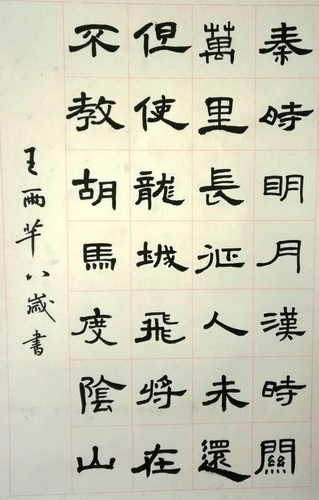 秦時明月漢時關
萬里長征人未還
但使龍城飛將在
不教胡馬度陰山
王雨芈八歲書